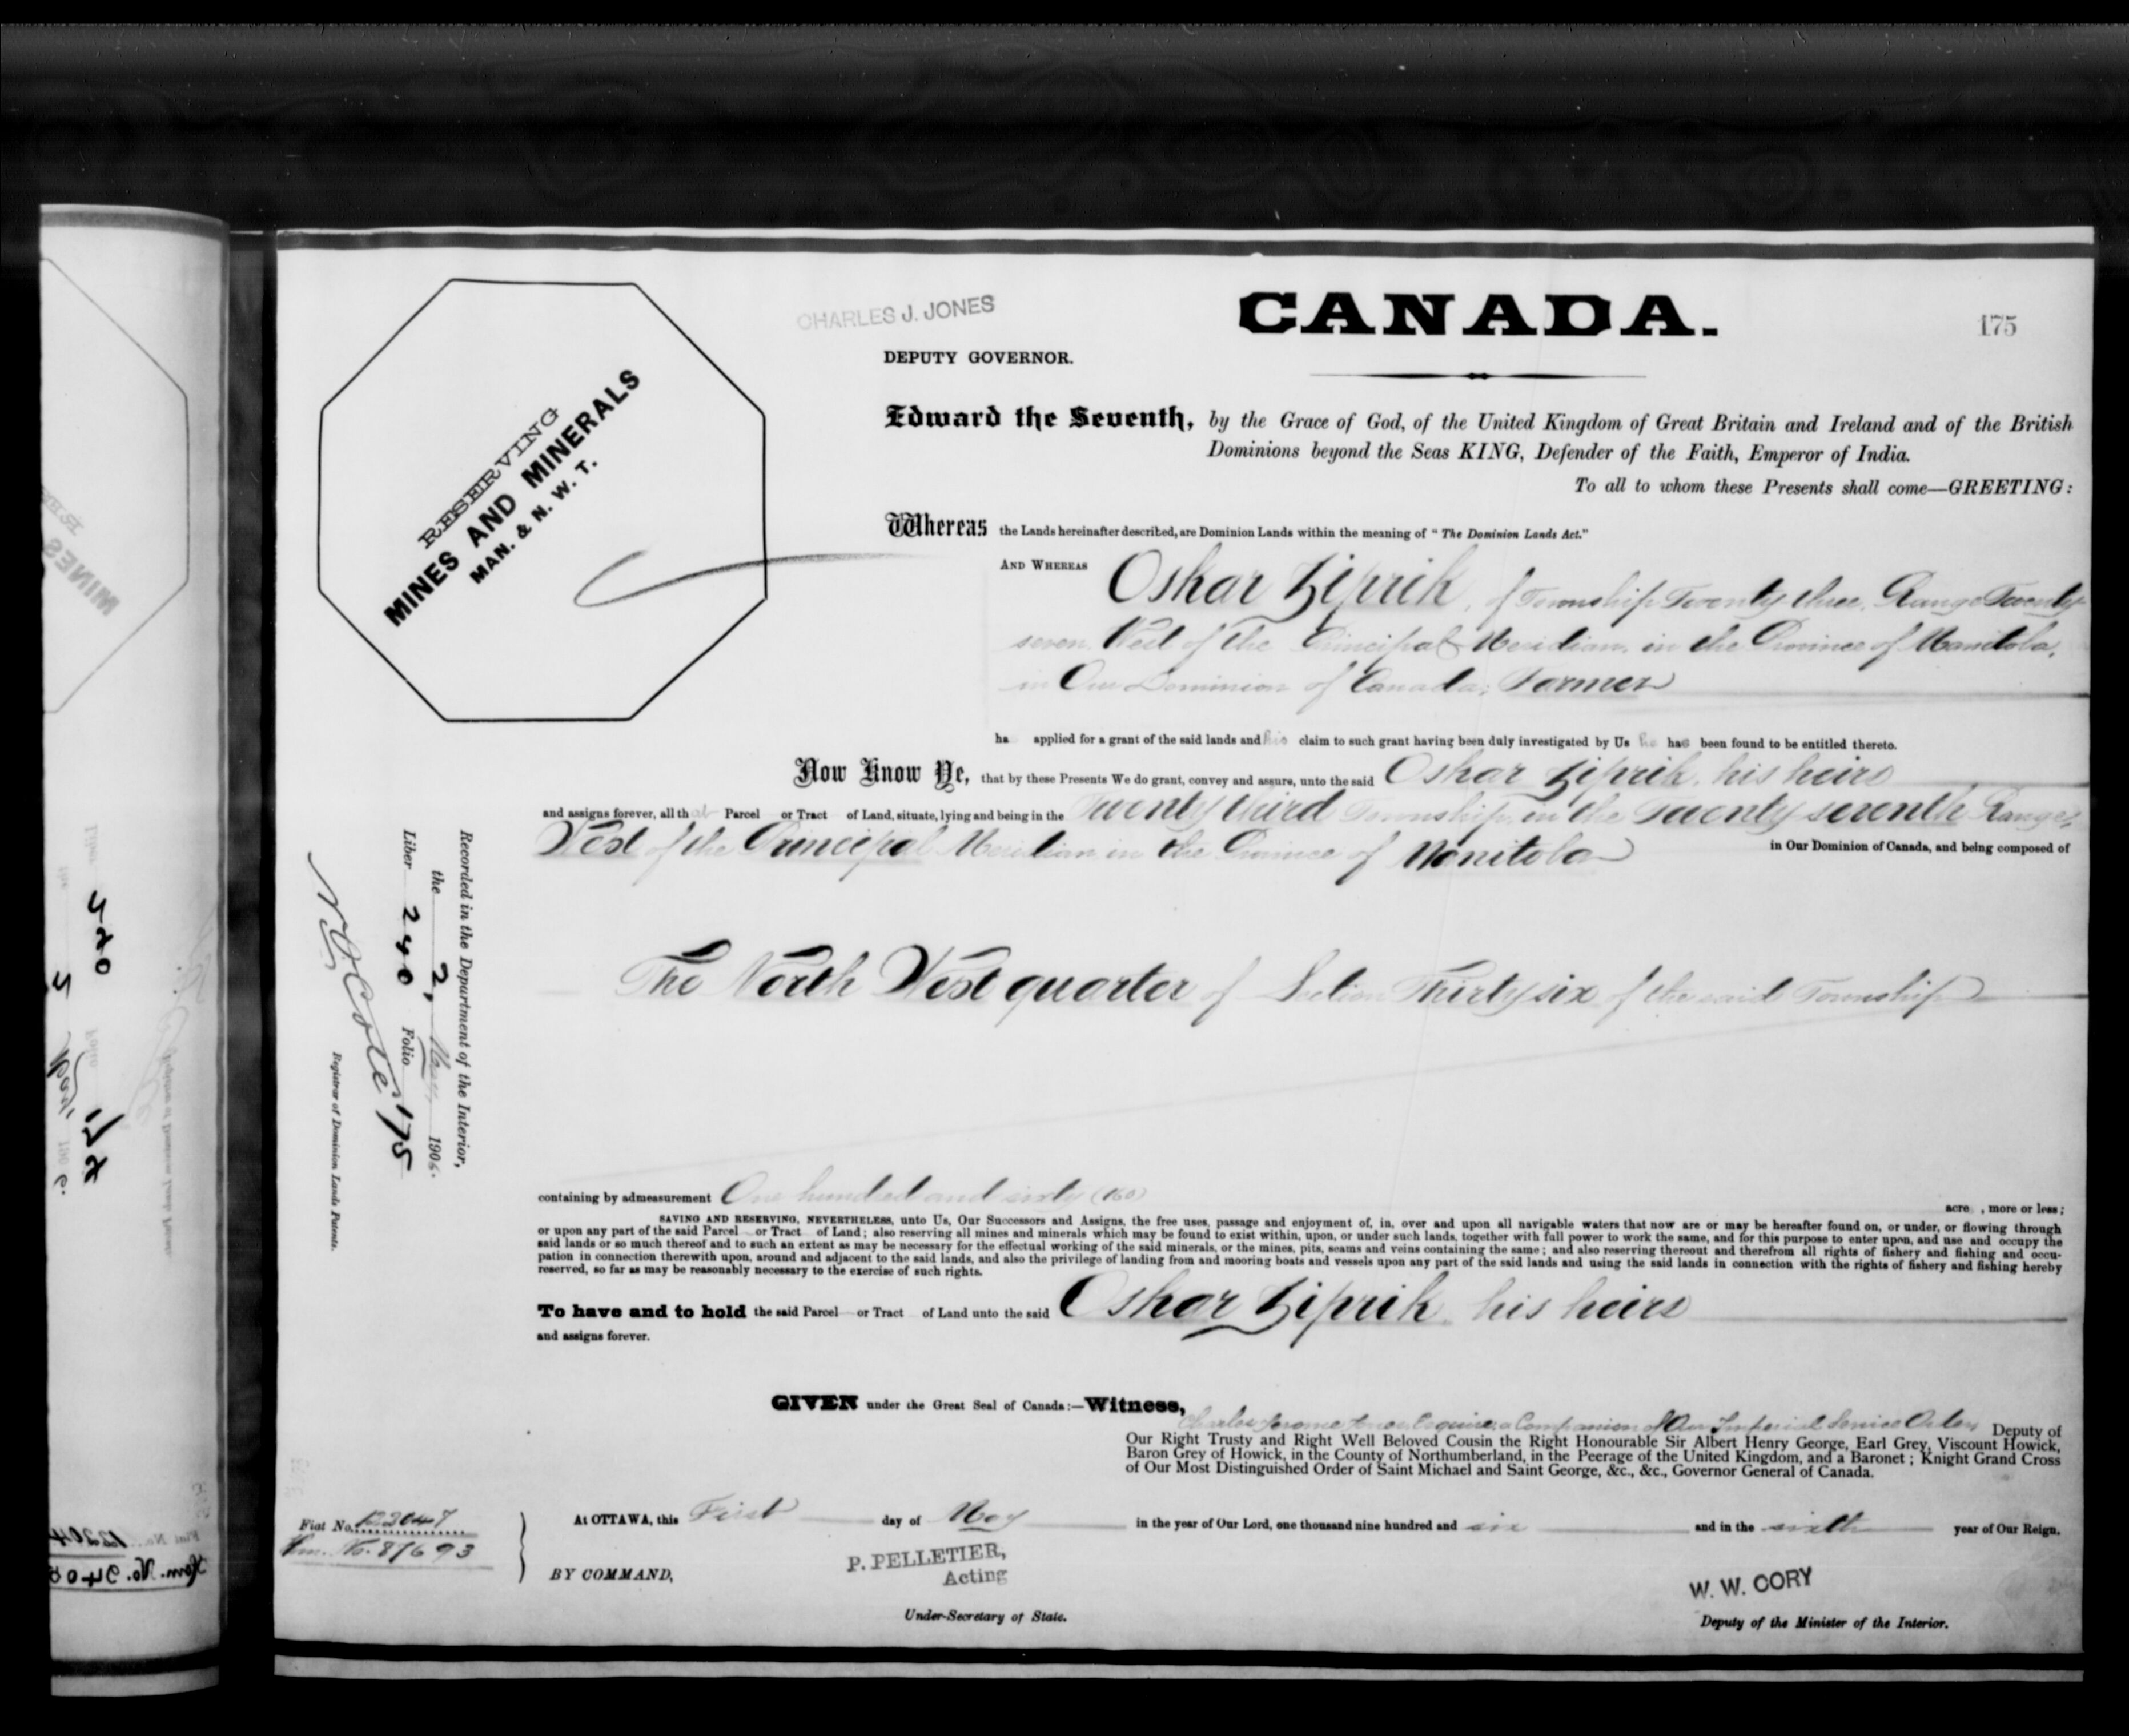 CHARLES J. JONES
CANADA.
175
DEPUTY GOVERNOR.
RESERVING
MINES AND MINERALS
MAN. & N. W. T.
Edward the Seventh, by the Grace of God, of the United Kingdom of Great Britain and Ireland and of the British
Dominions beyond the Seas KING, Defender of the Faith, Emperor of India.
To all to whom these Presents shall come—GREETING:
Whereas the Lands hereinafter described, are Dominion Lands within the meaning of "The Dominion Lands Act."
AND WHEREAS Oskar Ziprik, of Township Twenty three, Range Twenty
seven West of the Principal Meridian, in the Province of Manitoba,
in Our Dominion of Canada, Farmer
ha applied for a grant of the said lands and his claim to such grant having been duly investigated by Us he has been found to be entitled thereto.
Now Know Ye, that by these Presents We do grant, convey and assure, unto the said Oskar Ziprik, his heirs
and assigns forever, all that Parcel or Tract of Land, situate, lying and being in the Twenty third Township, in the Twenty seventh Range,
West of the Principal Meridian, in the Province of Manitoba in Our Dominion of Canada, and being composed of
The North West quarter of Section Thirty six of the said Township
Recorded in the Department of the Interior,
the 2, May, 1906.
Liber 240 Folio 175
Registrar of Dominion Lands Patents.
containing by admeasurement One hundred and sixty (160) acre , more or less;
SAVING AND RESERVING, NEVERTHELESS, unto Us, Our Successors and Assigns, the free uses, passage and enjoyment of, in, over and upon all navigable waters that now are or may be hereafter found on, or under, or flowing through
or upon any part of the said Parcel or Tract of Land; also reserving all mines and minerals which may be found to exist within, upon, or under such lands, together with full power to work the same, and for this purpose to enter upon, and use and occupy the
said lands or so much thereof and to such an extent as may be necessary for the effectual working of the said minerals, or the mines, pits, seams and veins containing the same; and also reserving thereout and therefrom all rights of fishery and fishing and occu-
pation in connection therewith upon, around and adjacent to the said lands, and also the privilege of landing from and mooring boats and vessels upon any part of the said lands and using the said lands in connection with the rights of fishery and fishing hereby
reserved, so far as may be reasonably necessary to the exercise of such rights.
To have and to hold the said Parcel or Tract of Land unto the said Oskar Ziprik, his heirs
and assigns forever.
GIVEN under the Great Seal of Canada:—Witness,
Charles Jerome Jones Esquire, a Companion of Our Imperial Service Order, Deputy of
Our Right Trusty and Right Well Beloved Cousin the Right Honourable Sir Albert Henry George, Earl Grey, Viscount Howick,
Baron Grey of Howick, in the County of Northumberland, in the Peerage of the United Kingdom, and a Baronet; Knight Grand Cross
of Our Most Distinguished Order of Saint Michael and Saint George, &c., &c., Governor General of Canada.
Fiat No. 122047
Hm. No. 87693
At OTTAWA, this First day of May in the year of Our Lord, one thousand nine hundred and six and in the sixth year of Our Reign.
BY COMMAND,
P. PELLETIER,
Acting
Under-Secretary of State.
W. W. CORY
Deputy of the Minister of the Interior.